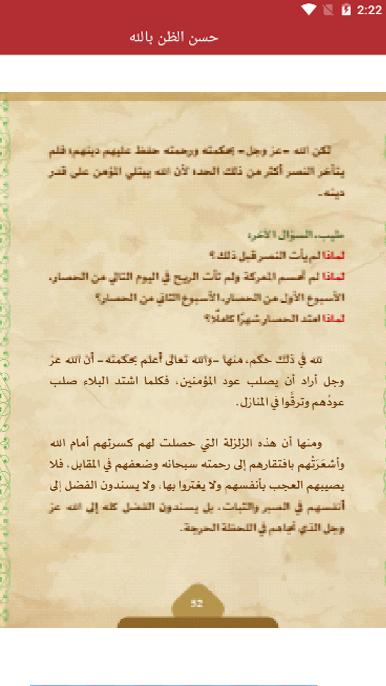 2:22
حسن الظن بالله
لكن الله -عز وجل- بحكمته ورحمته حفظ عليهم دينهم؛ فلم
يتأخر النصر أكثر من ذلك الحد؛ لأن الله يبتلي المؤمن على قدر
دينه.
طيب، السؤال الآخر:
لماذا لم يأت النصر قبل ذلك؟
لماذا لم تُحسم المعركة ولم تأت الريح في اليوم التالي من الحصار،
الأسبوع الأول من الحصار، الأسبوع الثاني من الحصار؟
لماذا امتد الحصار شهرًا كاملًا؟
لله في ذلك حكم، منها -والله تعالى أعلم بحكمته- أن الله عز
وجل أراد أن يصلب عود المؤمنين، فكلما اشتد البلاء صلب
عودُهم وترقَّوا في المنازل.
ومنها أن هذه الزلزلة التي حصلت لهم كسرتهم أمام الله
وأشعَرَتْهم بافتقارهم إلى رحمته سبحانه وضعفهم في المقابل، فلا
يصيبهم العجب بأنفسهم ولا يغتروا بها، ولا يسندون الفضل إلى
أنفسهم في الصبر والثبات، بل يسندون الفضل كله إلى الله عز
وجل الذي نجاهم في اللحظة الحرجة.
52